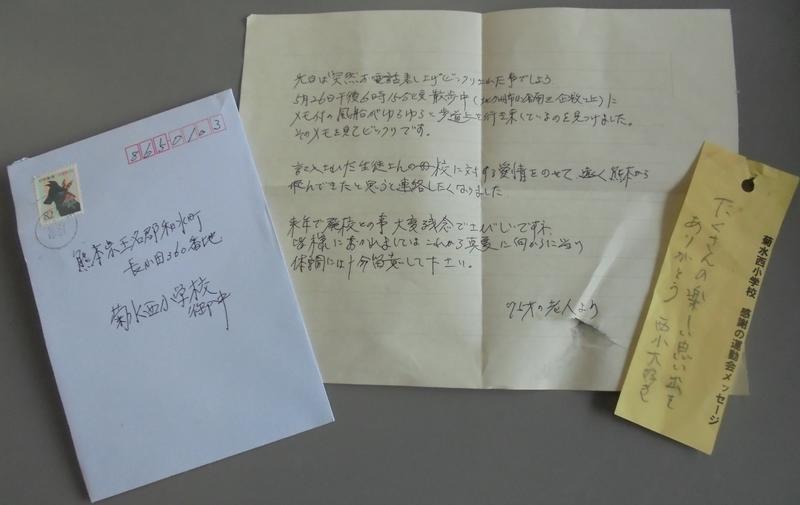 8650103
80
熊本県玉名郡和水町
長小田360番地
菊水西小学校
御中
先日は突然お電話差し上げビックリされた事でしょう
5月26日午後6時15分と夕散歩中(北九州市小倉南区企救丘)に
メモ付の風船がゆるゆると歩道上を行き来しているのを見つけました。
そのメモを見てビックリです。
記入された生徒さんの母校に対する愛情をのせて遠く熊本から
飛んできたと思うと連絡したくなりました
来年で廃校との事大変残念でさびしいですネ
皆様におかれましてはこれから真夏に向かうに当り
体調には十分留意して下さい。
75才の老人より
菊水西小学校 感謝の運動会メッセージ
たくさんの楽しい思い出を
ありがとう 西小大好き